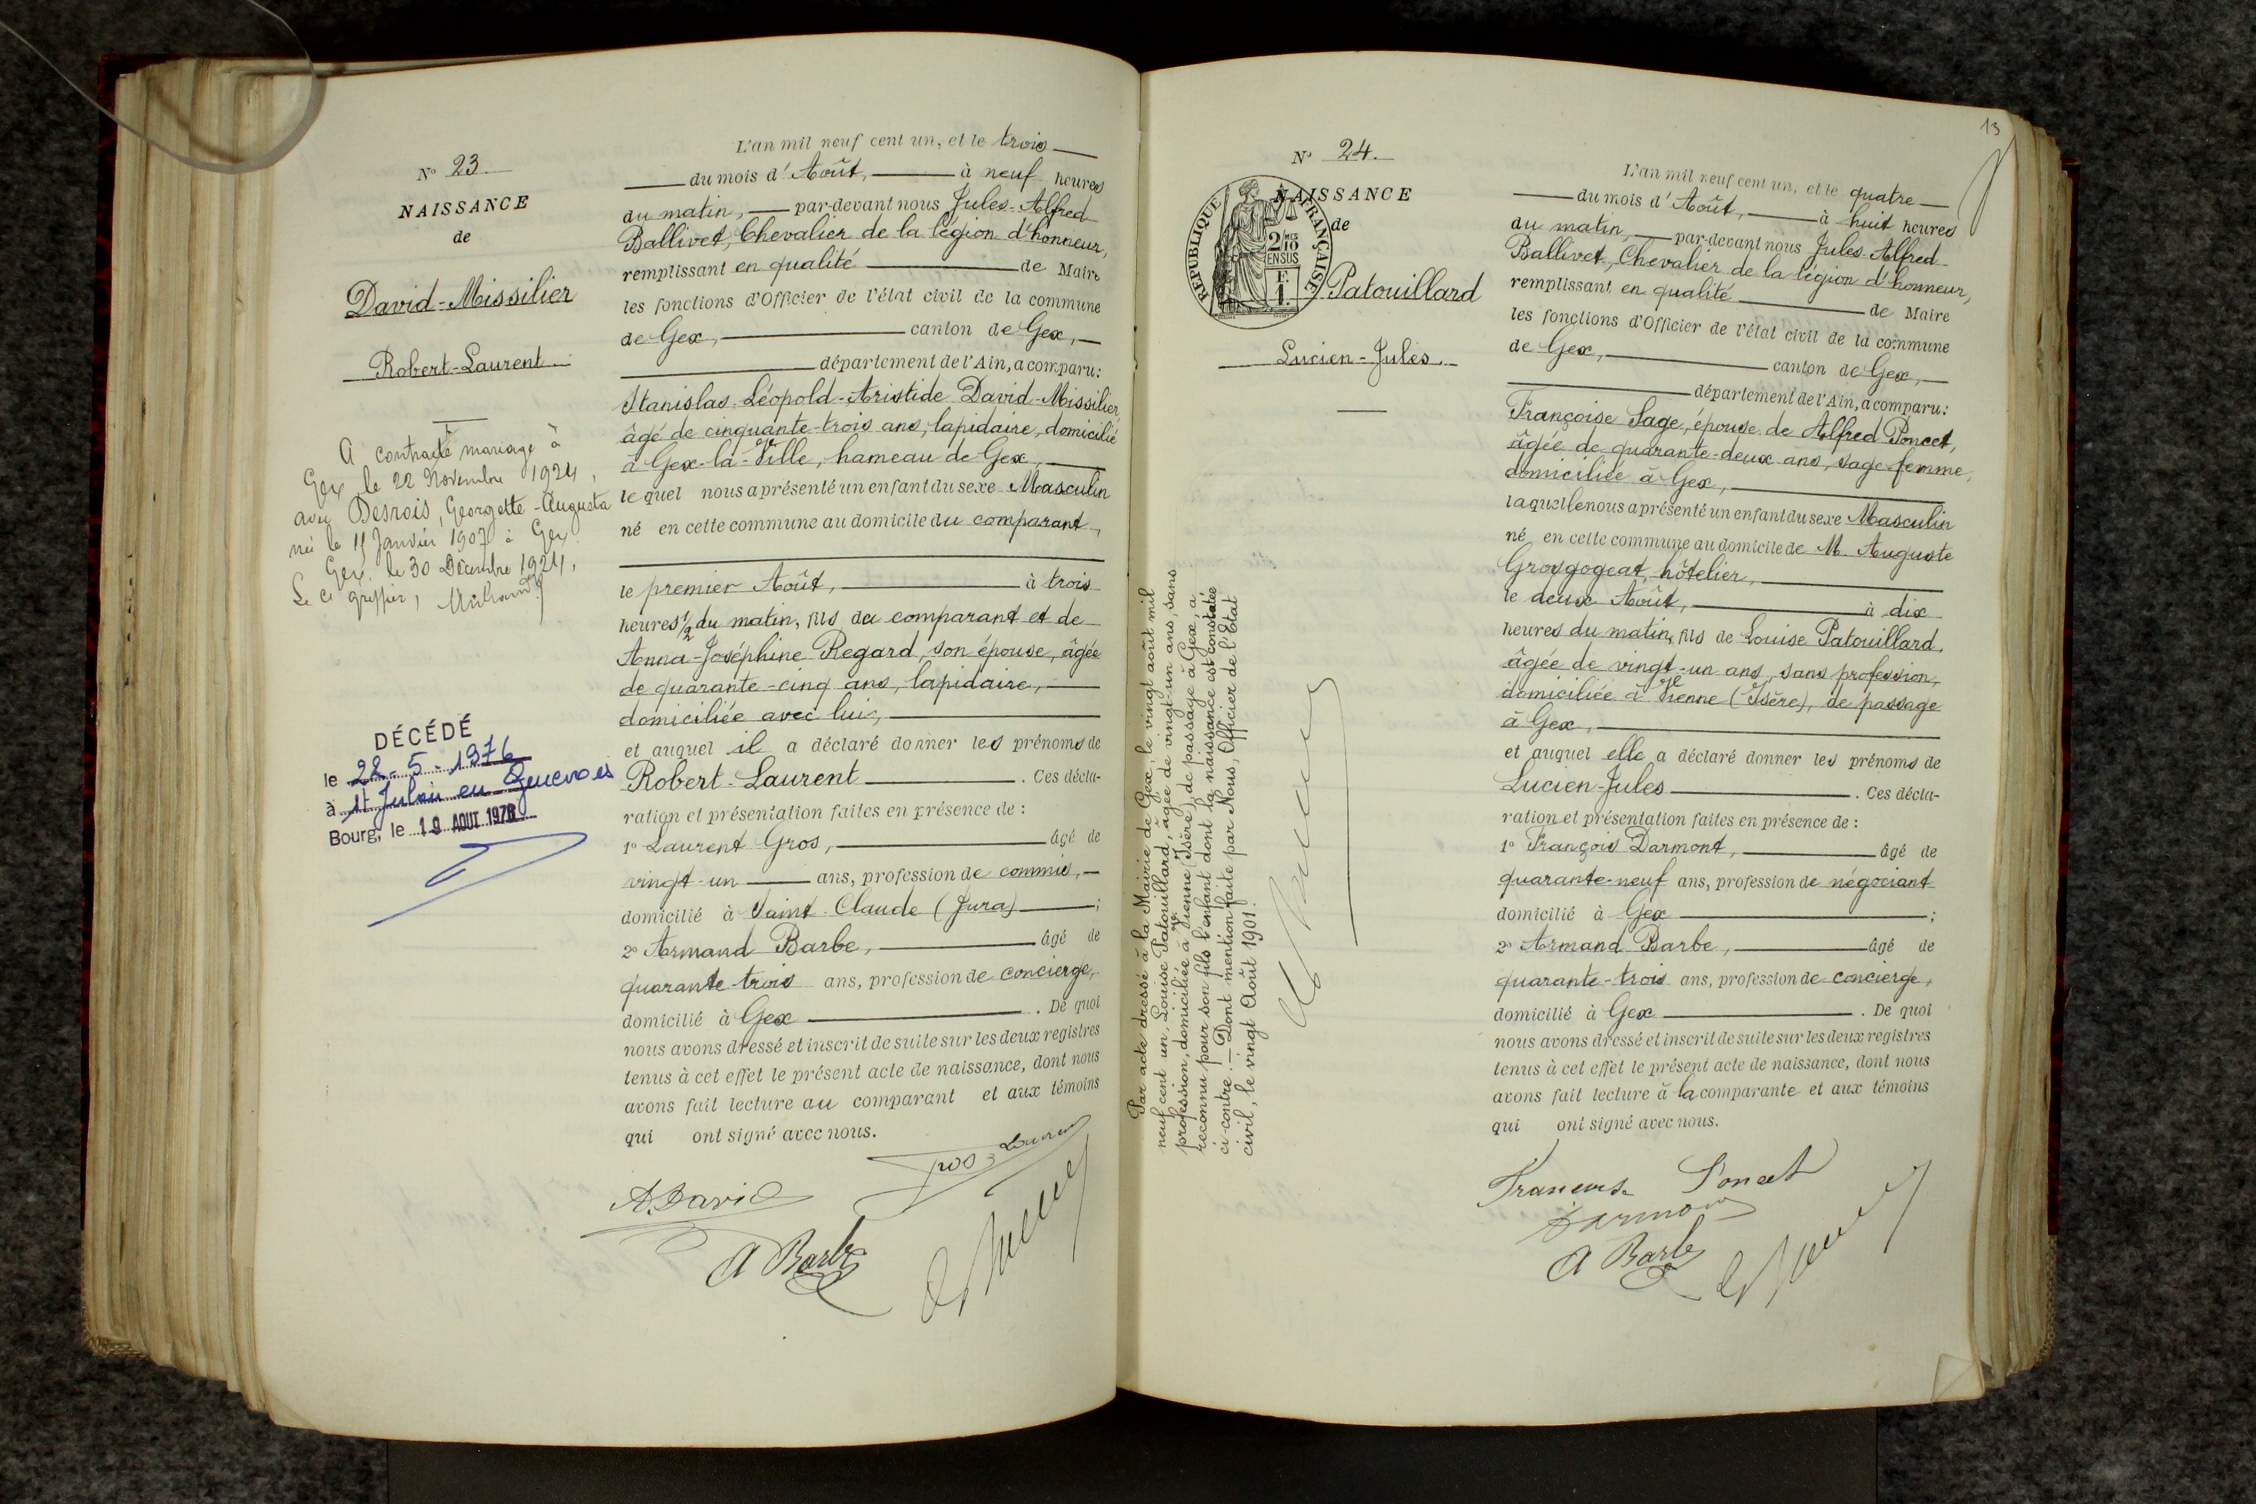 N° 23
NAISSANCE
de
David-Missilier
Robert-Laurent
A contracté mariage à
Gex le 22 Novembre 1924,
avec Desrois, Georgette-Augusta
née le 11 Janvier 1907 à Gex.
Gex. le 30 Décembre 1924,
Le greffier,
DÉCÉDÉ
le 28-5-1976
à St Julien en Genevois
Bourg, le 10 AOUT 1976
L'an mil neuf cent un, et le trois
du mois d'Août, à neuf heures
du matin, par-devant nous Jules-Alfred
Ballivet, Chevalier de la légion d'honneur,
remplissant en qualité de Maire
les fonctions d'Officier de l'état civil de la commune
de Gex, canton de Gex,
département de l'Ain, a comparu:
Stanislas-Léopold-Aristide David-Missilier
âgé de cinquante-trois ans, lapidaire, domicilié
à Gex-la-Ville, hameau de Gex,
lequel nous a présenté un enfant du sexe Masculin
né en cette commune au domicile du comparant,
le premier Août, à trois
heures 1/2 du matin, fils du comparant et de
Anna-Joséphine Regard, son épouse, âgée
de quarante-cinq ans, lapidaire,
domiciliée avec lui,
et auquel il a déclaré donner les prénoms de
Robert-Laurent. Ces décla-
ration et présentation faites en présence de :
1° Laurent Gros, âgé de
vingt-un ans, profession de commis,
domicilié à Saint-Claude (Jura);
2° Armand Barbe, âgé de
quarante-trois ans, profession de concierge,
domicilié à Gex. De quoi
nous avons dressé et inscrit de suite sur les deux registres
tenus à cet effet le présent acte de naissance, dont nous
avons fait lecture au comparant et aux témoins
qui ont signé avec nous.
Gros Laurent
A. David
A Barbe
13
N° 24.
NAISSANCE
de
RÉPUBLIQUE FRANÇAISE
2/10 EN SUS
F.
1.
Patouillard
Lucien-Jules
Par acte dressé à la Mairie de Gex, le vingt août mil
neuf cent un, Louise Patouillard, âgée de vingt-un ans, sans
profession, domiciliée à Vienne (Isère), de passage à Gex, a
reconnu pour son fils l'enfant dont la naissance est constatée
ci-contre. — Dont mention faite par Nous, Officier de l'Etat
civil, le vingt Août 1901.
L'an mil neuf cent un, et le quatre
du mois d'Août, à huit heures
du matin, par-devant nous Jules-Alfred
Ballivet, Chevalier de la légion d'honneur,
remplissant en qualité de Maire
les fonctions d'Officier de l'état civil de la commune
de Gex, canton de Gex,
département de l'Ain, a comparu:
Françoise Sage, épouse de Alfred Poncet,
âgée de quarante-deux ans, sage-femme,
domiciliée à Gex,
laquelle nous a présenté un enfant du sexe Masculin
né en cette commune au domicile de M. Auguste
Grosgogeat, hôtelier,
le deux Août, à dix
heures du matin, fils de Louise Patouillard,
âgée de vingt-un ans, sans profession,
domiciliée à Vienne (Isère), de passage
à Gex,
et auquel elle a déclaré donner les prénoms de
Lucien-Jules. Ces décla-
ration et présentation faites en présence de :
1° François Darmont, âgé de
quarante-neuf ans, profession de négociant
domicilié à Gex;
2° Armand Barbe, âgé de
quarante-trois ans, profession de concierge,
domicilié à Gex. De quoi
nous avons dressé et inscrit de suite sur les deux registres
tenus à cet effet le présent acte de naissance, dont nous
avons fait lecture à la comparante et aux témoins
qui ont signé avec nous.
Poncet
Darmont
A Barbe